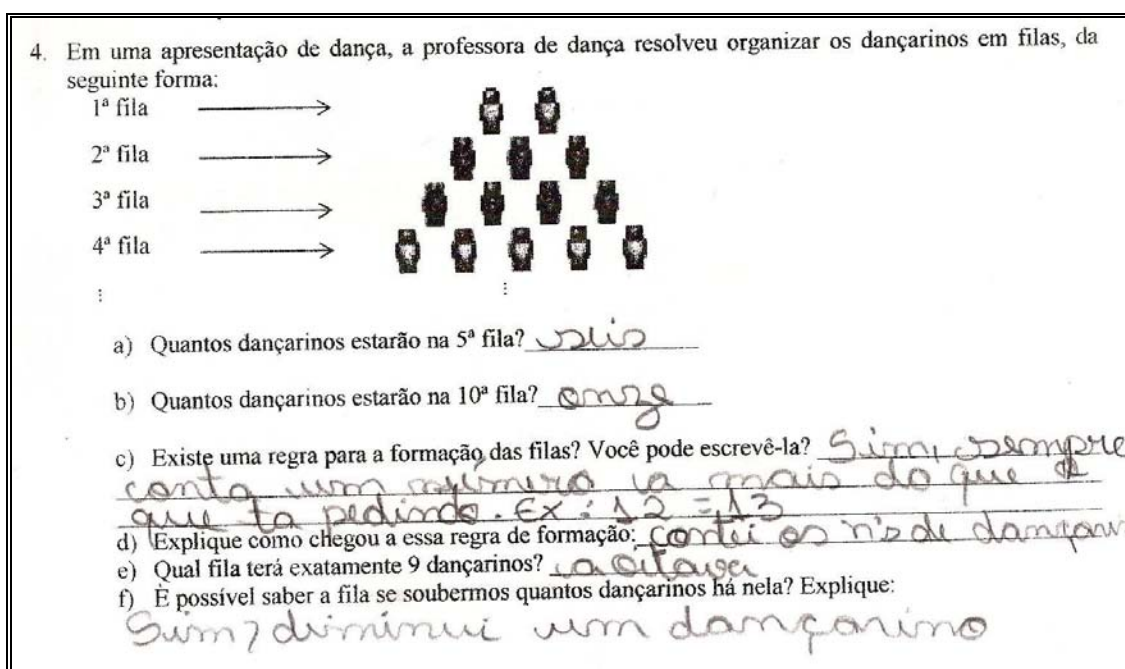 4. Em uma apresentação de dança, a professora de dança resolveu organizar os dançarinos em filas, da
seguinte forma:
1ª fila
2ª fila
3ª fila
4ª fila
⋮ ⋮
a) Quantos dançarinos estarão na 5ª fila? seis
b) Quantos dançarinos estarão na 10ª fila? onze
c) Existe uma regra para a formação das filas? Você pode escrevê-la? Sim, sempre
conta um número a mais do que
que ta pedindo. Ex: 12 = 13
d) Explique como chegou a essa regra de formação: contei os nºs de
e) Qual fila terá exatamente 9 dançarinos? a oitava
f) È possível saber a fila se soubermos quantos dançarinos há nela? Explique:
Sim, diminui um dançarino